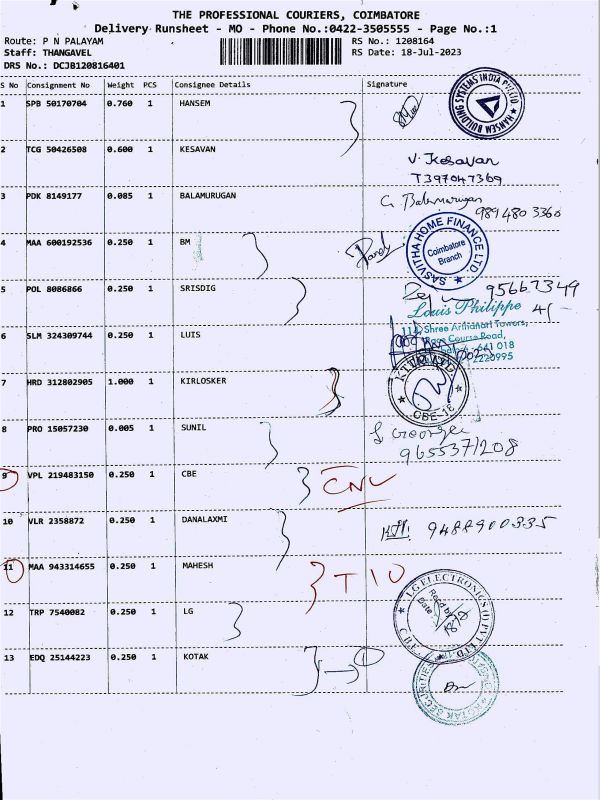 THE PROFESSIONAL COURIERS, COIMBATORE
Delivery Runsheet - MO - Phone No.:0422-3505555 - Page No.:1
Route: P N PALAYAM RS No.: 1208164
Staff: THANGAVEL RS Date: 18-Jul-2023
DRS No.: DCJB120816401
S No Consignment No Weight PCS Consignee Details Signature
1 SPB 50170704 0.760 1 HANSEM
HANSEM BUILDING SYSTEMS INDIA PVT LTD
2 TCG 50426508 0.600 1 KESAVAN
V. Kesavan
7397047369
3 PDK 8149177 0.085 1 BALAMURUGAN
G Balamurugan
9894803360
4 MAA 600192536 0.250 1 BM
SASVITHA HOME FINANCE LTD
Coimbatore
Branch
5 POL 8086866 0.250 1 SRISDIG
95667349
Louis Philippe
4/-
6 SLM 324309744 0.250 1 LUIS
Shree Arihanth Towers,
Race Course Road,
641 018
2220995
7 HRD 312802905 1.000 1 KIRLOSKER
CBE-18
8 PRO 15057230 0.005 1 SUNIL
George
9655371208
9 VPL 219483150 0.250 1 CBE
CNL
10 VLR 2358872 0.250 1 DANALAXMI
9488900335
11 MAA 943314655 0.250 1 MAHESH
T I O
12 TRP 7540082 0.250 1 LG
LG ELECTRONICS (I) PVT LTD
Recd by
Date
13 EDQ 25144223 0.250 1 KOTAK
KOTAK SECURITIES